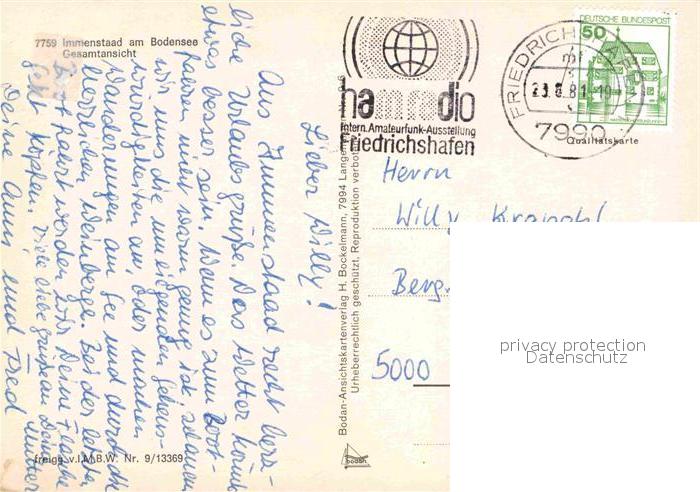 7759 Immenstaad am Bodensee
Gesamtansicht
Lieber Willy!
Aus Immenstaad recht herz-
liche Urlaubsgrüße. Das Wetter könnte
etwas besser sein. Wenn es zum Boot-
fahren nicht warm genug ist schauen
wir uns die umliegenden Sehens-
würdigkeiten an, oder machen
Wanderungen am See und durch die
herrlichen Weinberge. Bei der letzten
Rast haben wir Deine Flasche
geköpft. Viele liebe Grüße an Deine Mutter
Deine Anni und Fred
freigs v.I.M.B.W. Nr. 9/13369
Bodan-Ansichtskartenverlag H. Bockelmann, 7994 Langenargen
Urheberrechtlich geschützt, Reproduktion verboten
bodan
ham radio
Intern. Amateurfunk-Ausstellung
Friedrichshafen
FRIEDRICHSHAFEN
7990
DEUTSCHE BUNDESPOST
50
Qualitätskarte
Herrn
Willy
Berg
5000
privacy protection
Datenschutz